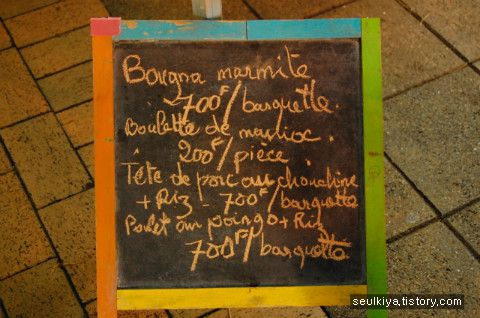 Bougna marmite
700F/barquette.
Boulette de manioc.
200F/pièce.
Tête de porc au chouchine
+ Riz - 700F/barquette
Poulet au poingo + Riz
700F/barquette
seulkiya.tistory.com